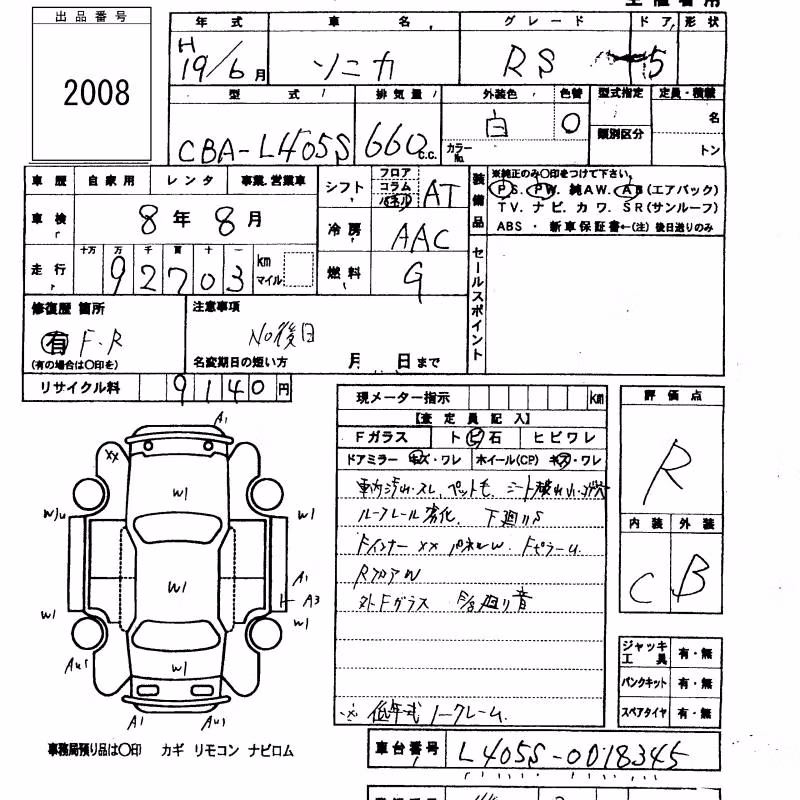 出品番号
2008
年式 車名 グレード ドア 形状
H19/6月 ソニカ RS 5
型式 排気量 外装色 色替 型式指定 定員・積載
CBA-L405S 660c.c. 白 カラーNo. 類別区分 名 トン
車歴 自家用 レンタ 事業.営業車
車検 8年8月
走行 十万 万 千 百 十 一
92703 km マイル
シフト フロア コラム パネル AT
冷房 AAC
燃料 G
装備品 ※純正のみ〇印をつけて下さい。
P S. P W. 純AW. A B(エアバック)
TV. ナビ. カワ. SR(サンルーフ)
ABS ・ 新車保証書←(注) 後日送りのみ
セールスポイント
修復歴 箇所
有 F.R
(有の場合は〇印を)
注意事項
No後日
名変期日の短い方 月 日まで
リサイクル料 9140円
現メーター指示 km
【査定員記入】
Fガラス ト ビ 石 ヒビワレ
ドアミラー キズ・ワレ ホイール(CP) キズ・ワレ
車内汚れ.スレ.ペットも シート
ルーフレール劣化. 下廻りS
Fインナー XX パネルW. Fピラーu.
RフロアW
外Fガラス 廻り音
※ 低年式ノークレーム.
評価点
R
内装 外装
C B
ジャッキ工具 有・無
パンクキット 有・無
スペアタイヤ 有・無
A1
XX
W1
W1
W1
A1
A3
W1
W1
W1
A1
事務局預り品は〇印 カギ リモコン ナビロム
車台番号 L405S-0018345